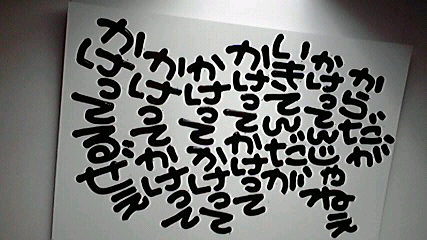 からだが
かけってんじゃねぇ
いきてんだが
かけってかけって
かけってかけって
かけってかけって
かけってるぜぇ